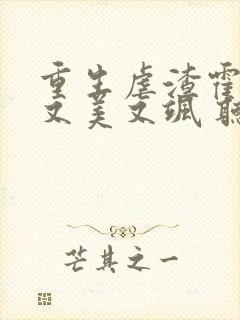 重生虐渣霍
又美又飒 聽
芒其之一